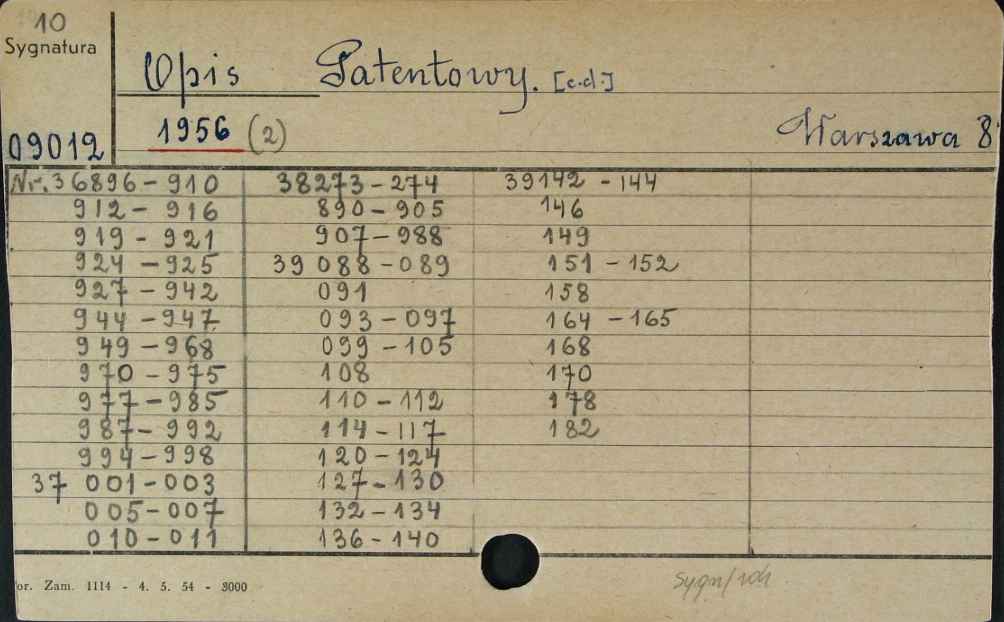 10
Sygnatura
Opis Patentowy. [c.d.]
09012
1956 (2)
Warszawa 8
Nr. 36896-910 38273-274 39142-144
912-916 890-905 146
919-921 907-988 149
924-925 39 088-089 151-152
927-942 091 158
944-947 093-097 164-165
949-968 099-105 168
970-975 108 170
977-985 110-112 178
987-992 114-117 182
994-998 120-124
37 001-003 127-130
005-007 132-134
010-011 136-140
or. Zam. 1114 - 4. 5. 54 - 3000